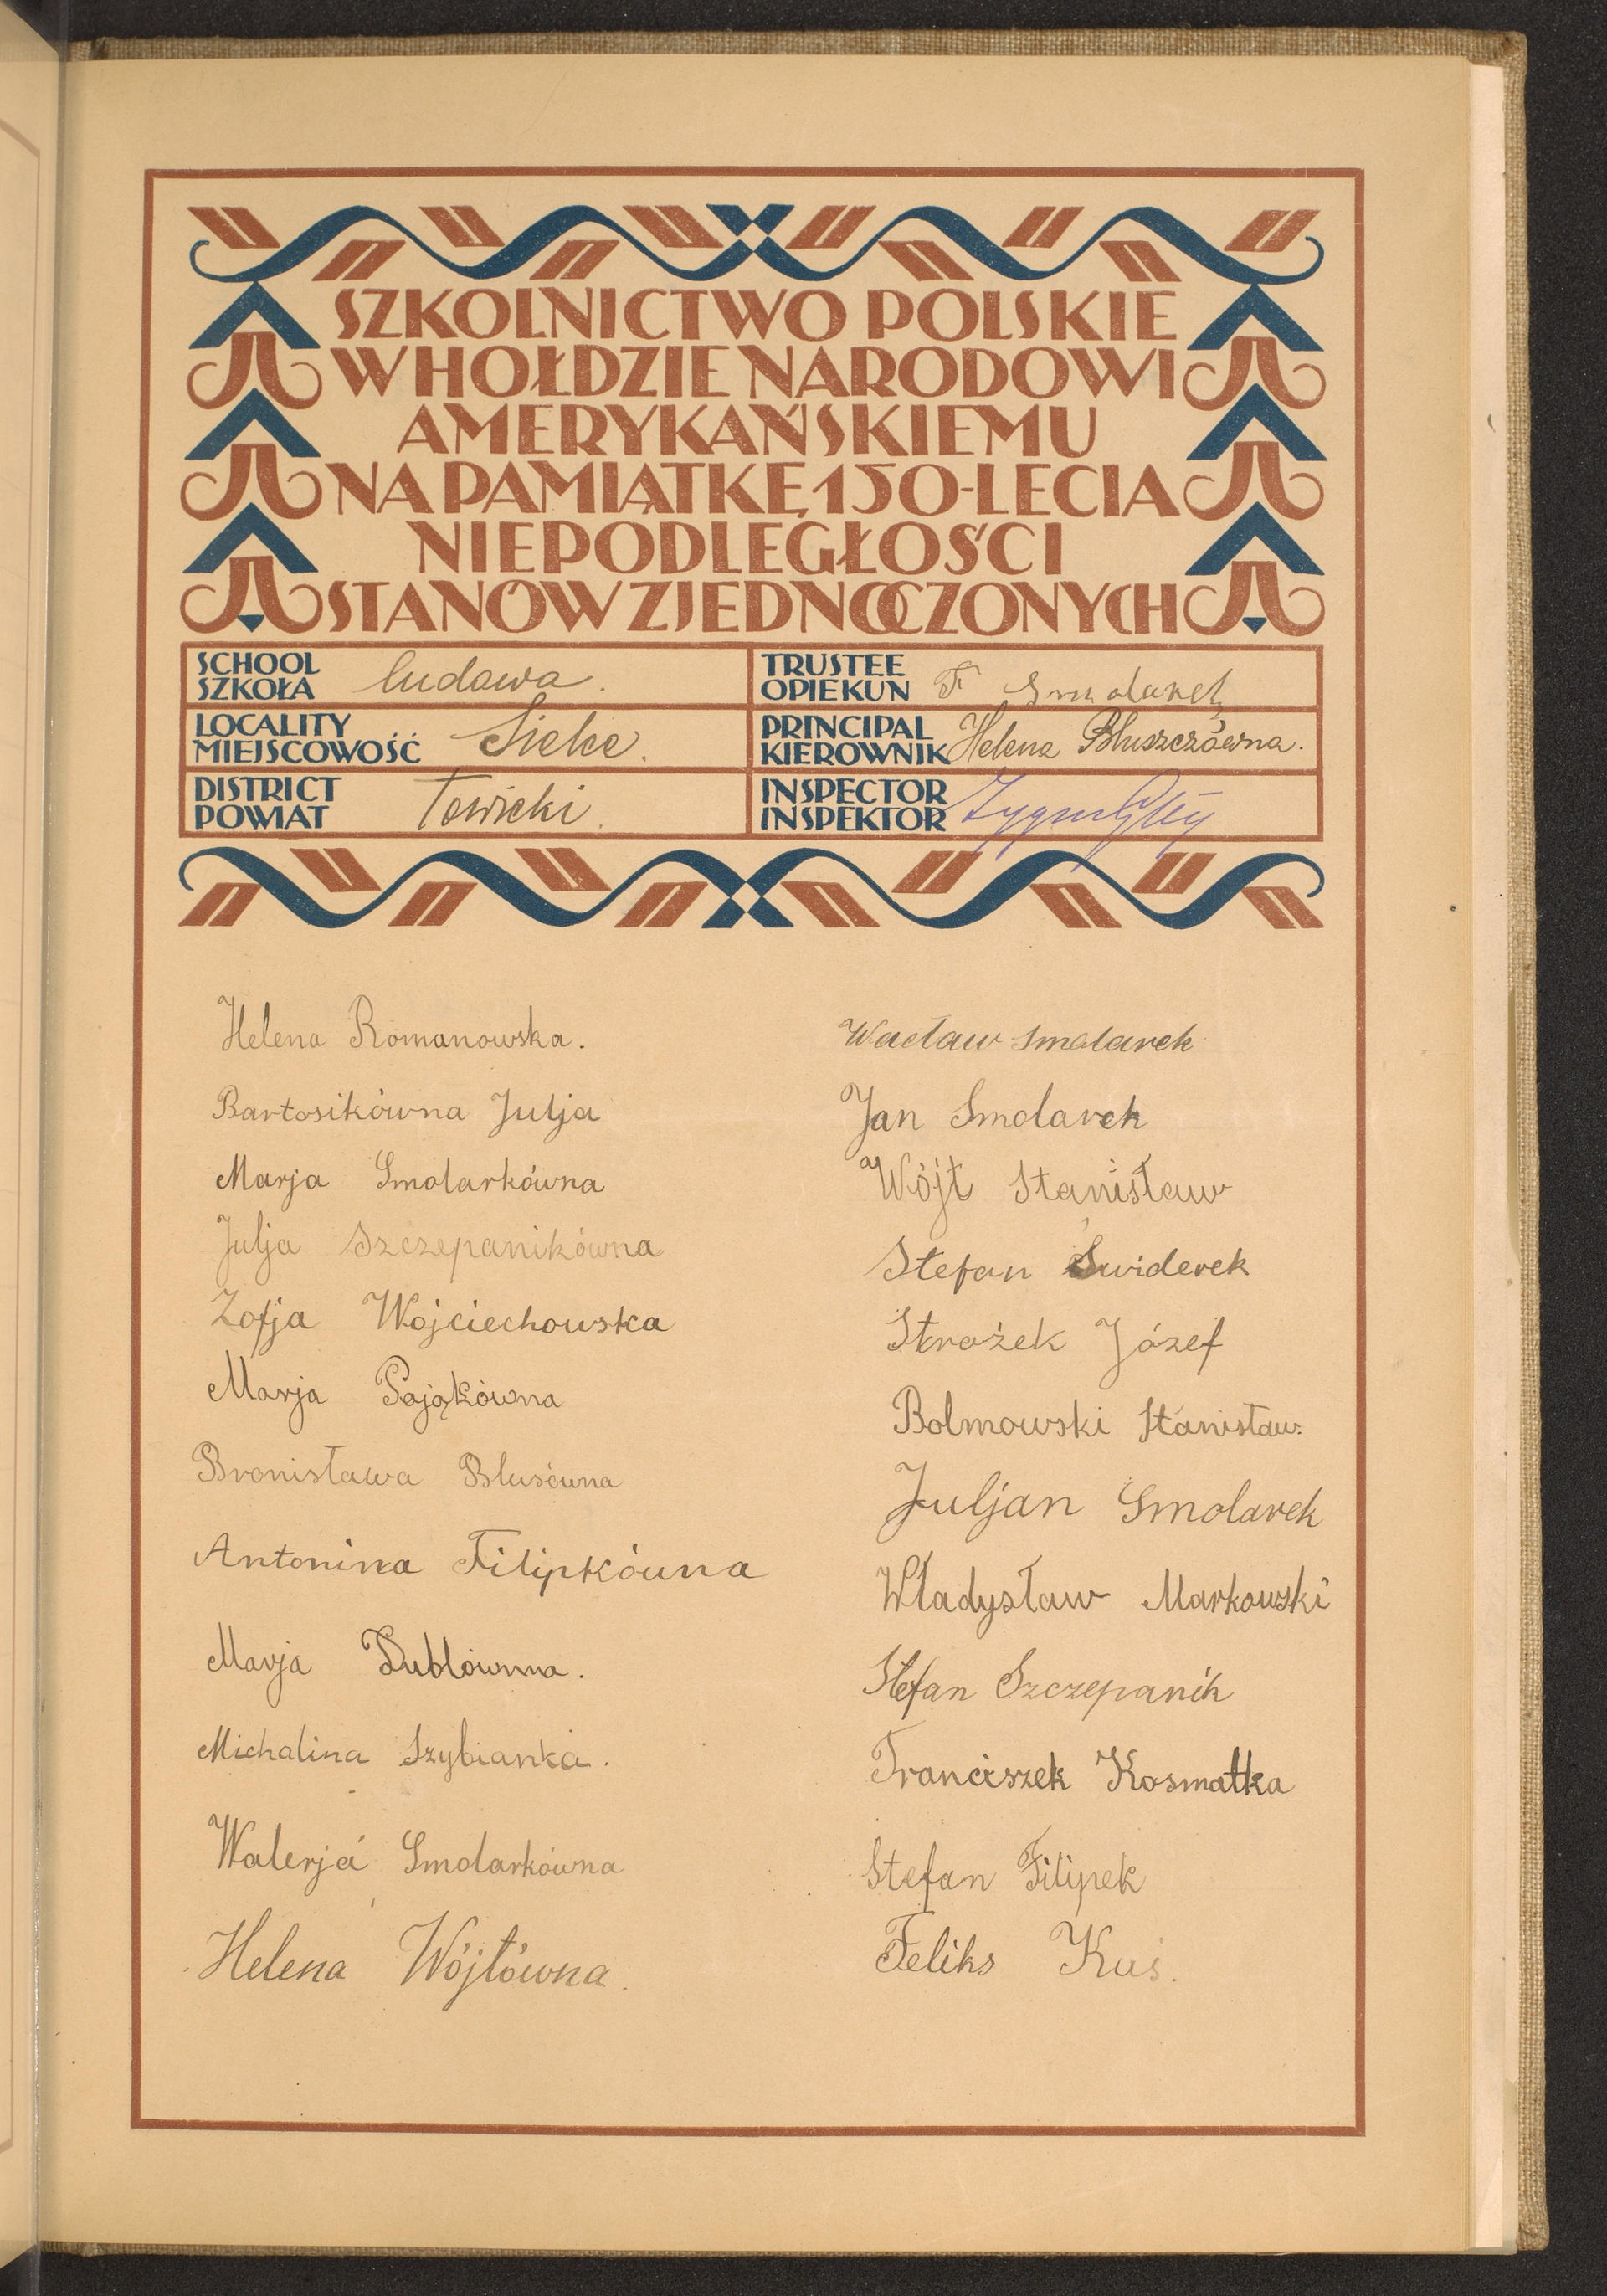 SZKOLNICTWO POLSKIE
W HOŁDZIE NARODOWI
AMERYKAŃSKIEMU
NA PAMIĄTKĘ 150-LECIA
NIEPODLEGŁOŚCI
STANÓW ZJEDNOCZONYCH
SCHOOL
SZKOŁA ludowa.
LOCALITY
MIEJSCOWOŚĆ Sielce.
DISTRICT
POWIAT Łowicki.
TRUSTEE
OPIEKUN F Smolarek
PRINCIPAL
KIEROWNIK Helena Bluszczówna.
INSPECTOR
INSPEKTOR
Helena Romanowska.
Bartosikówna Julja
Marja Smolarkówna
Julja Szczepanikówna
Zofja Wojciechowska
Marja Pająkówna
Bronisława Blusówna
Antonina Filipkówna
Marja Dublówna.
Michalina Szybianka.
Walerja Smolarkówna
Helena Wójtówna.
Wacław Smolarek
Jan Smolarek
Wójt Stanisław
Stefan Świderek
Strożek Józef
Bolmowski Stanisław.
Juljan Smolarek
Władysław Markowski
Stefan Szczepanik
Franciszek Kosmatka
Stefan Filipek
Feliks Kuś.